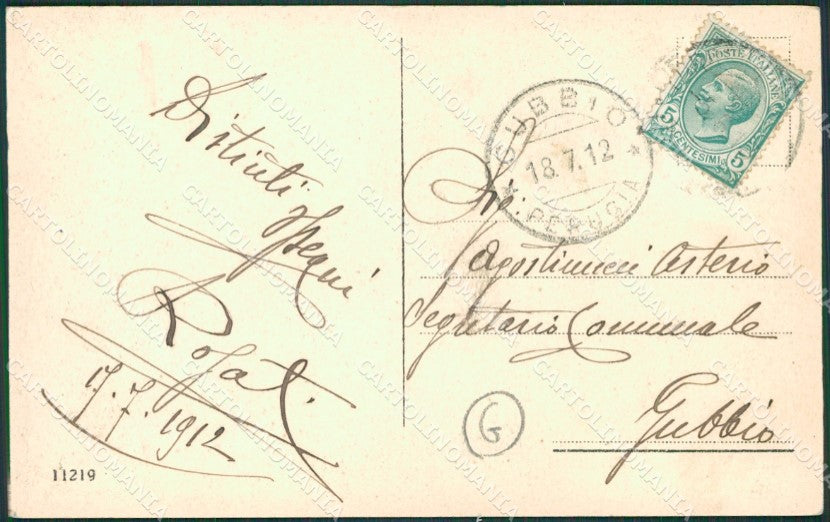 Distinti
Ossequi
Rosati
17.7.1912
11219
GUBBIO
18.7.12
* PERUGIA *
POSTE ITALIANE
5 CENTESIMI 5
Sig.
Agostinucci Asterio
Segretario Comunale
Gubbio
G
CARTOLINOMANIA